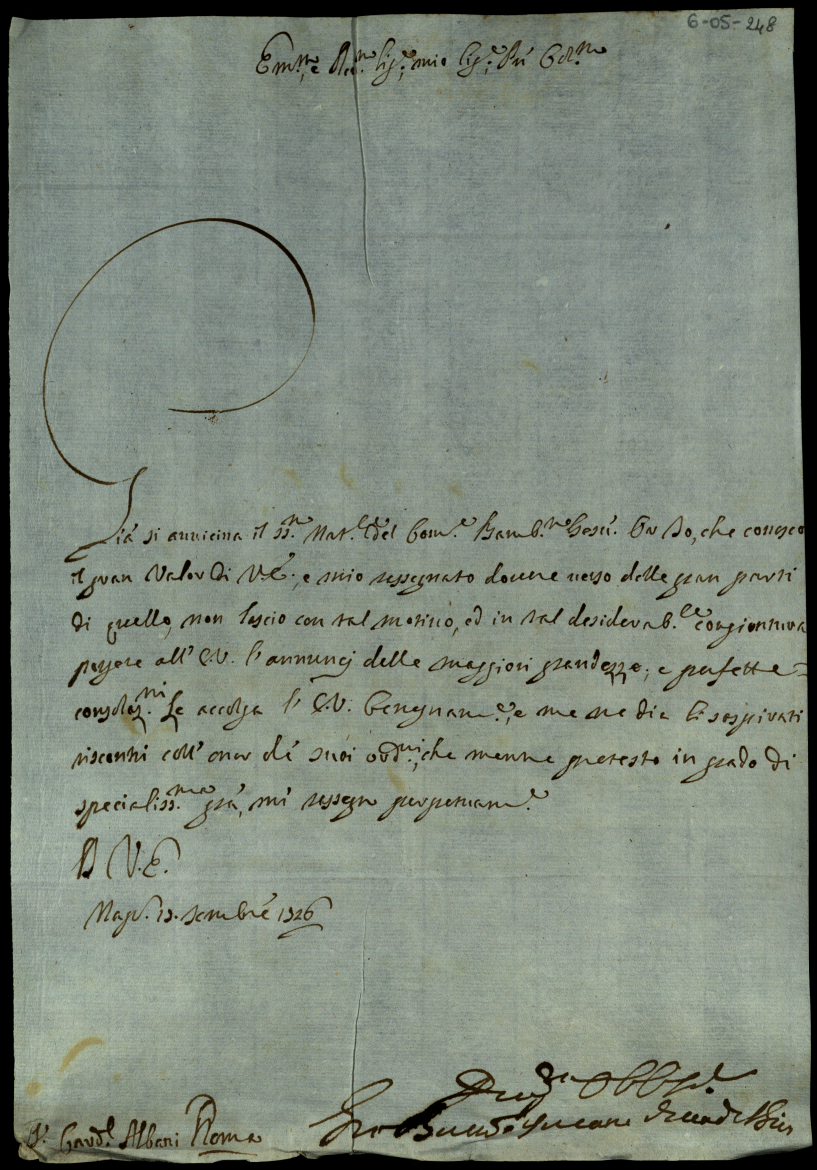 6-05-248
Em.mo, e Rev.mo Sig.re, mio Sig.re P.n Col.mo
Già si avvicina il SS.mo Nat.le del Com.e Bamb.no Giesù. On Io, che conosco
il gran valor di V.E., e mio rassegnato dovere verso delle gran parti
di quello, non lascio con tal motivo, ed in tal desiderab.le congiontura
porgere all' E.V. l'annuncj delle maggiori grandezze, e perfette
consolaz.ni. Le accolga l' E.V. benignam.e, e me ne dia li sospirati
riscontri coll' onor de' suoi ord.ni, che mentre protesto in grado di
specialiss.ma gra, mi rassegno perpetuam.e
D V.E.
Nap. 13. Xembre 1726
S.r Card.l Albani Roma
Div.mo Obb.mo